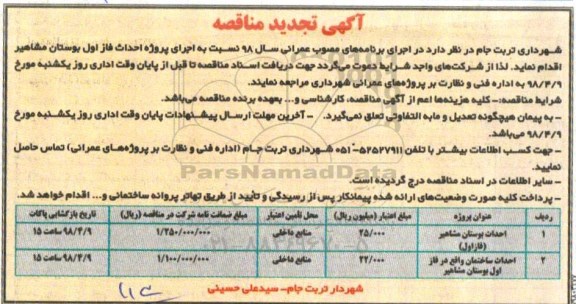 آگهی تجدید مناقصه
شهرداری تربت جام در نظر دارد در اجرای برنامه‌های مصوب عمرانی سال ۹۸ نسبت به اجرای پروژه احداث فاز اول بوستان مشاهیر
اقدام نماید. لذا از شرکت‌های واجد شرایط دعوت می‌گردد جهت دریافت اسناد مناقصه تا قبل از پایان وقت اداری روز یکشنبه مورخ
۹۸/۴/۹ به اداره فنی و نظارت بر پروژه‌های عمرانی شهرداری مراجعه نمایند.
شرایط مناقصه:- کلیه هزینه‌ها اعم از آگهی مناقصه، کارشناسی و... بعهده برنده مناقصه می‌باشد.
- به پیمان هیچگونه تعدیل و مابه التفاوتی تعلق نمی‌گیرد. - آخرین مهلت ارسال پیشنهادات پایان وقت اداری روز یکشنبه مورخ
۹۸/۴/۹ می‌باشد.
- جهت کسب اطلاعات بیشتر با تلفن ۵۲۵۲۷۹۱۱-۰۵۱ شهرداری تربت جام (اداره فنی و نظارت بر پروژه‌های عمرانی) تماس حاصل
نمایید.
- سایر اطلاعات در اسناد مناقصه درج گردیده است.
- پرداخت کلیه صورت وضعیت‌های ارائه شده پیمانکار پس از رسیدگی و تأیید از طریق تهاتر پروانه ساختمانی و... اقدام خواهد شد.
ردیف عنوان پروژه مبلغ اعتبار (میلیون ریال) محل تأمین اعتبار مبلغ ضمانت نامه شرکت در مناقصه (ریال) تاریخ بازگشایی پاکات
۱ احداث بوستان مشاهیر (فاز اول) ۲۵/۰۰۰ منابع داخلی ۱/۲۵۰/۰۰۰/۰۰۰ ۹۸/۴/۹ ساعت ۱۵
۲ احداث ساختمان واقع در فاز اول بوستان مشاهیر ۲۲/۰۰۰ منابع داخلی ۱/۱۰۰/۰۰۰/۰۰۰ ۹۸/۴/۹ ساعت ۱۵
شهردار تربت جام- سیدعلی حسینی
ParsNamadData